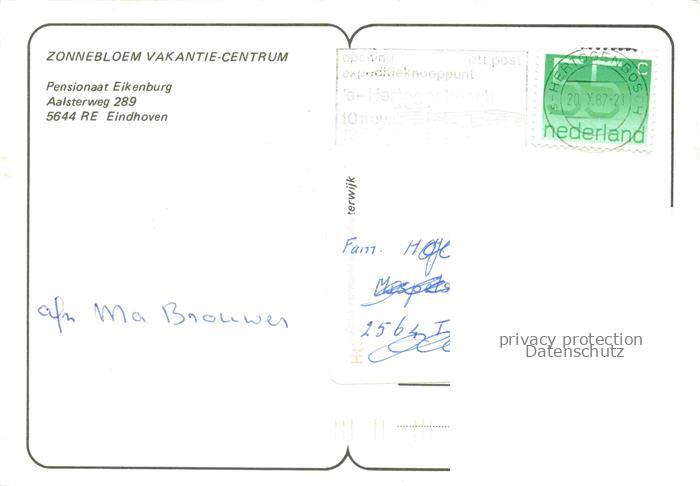 ZONNEBLOEM VAKANTIE-CENTRUM
Pensionaat Eikenburg
Aalsterweg 289
5644 RE Eindhoven
opening ptt post
expeditieknooppunt
's-Hertogenbosch
10 nov.
's-HERTOGENBOSCH
20.X.87-21
c
55
nederland
terwijk
Fam.
2564
afz Ma Brouwer
privacy protection
Datenschutz